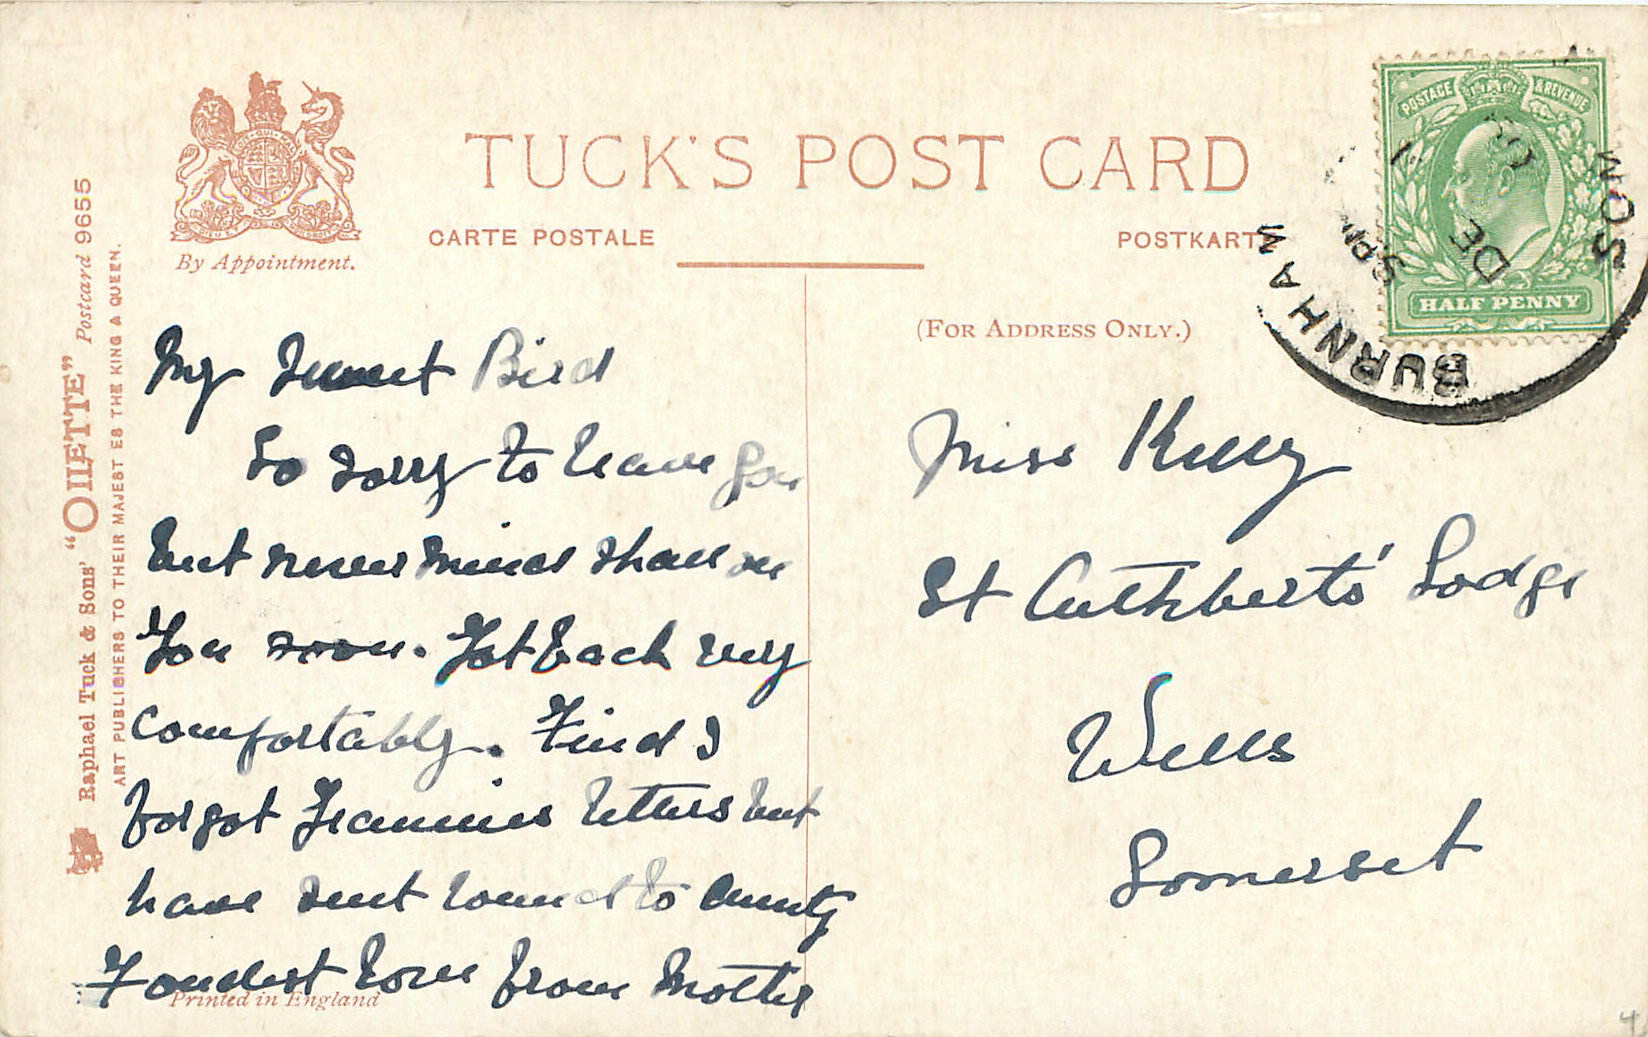 TUCK'S POST CARD
CARTE POSTALE
POSTKARTE
By Appointment.
(FOR ADDRESS ONLY.)
Raphael Tuck & Sons' "OILETTE" Postcard 9655
ART PUBLISHERS TO THEIR MAJESTIES THE KING & QUEEN.
POSTAGE & REVENUE
HALF PENNY
BURNHAM SOM
8 PM
DE
My Bird
So sorry to leave you
but never mind shall see
You soon. Got back very
comfortably. Find I
forgot letters but
have sent round to Aunty
Fondest love from Mother
Printed in England
Miss Kelly
St Cuthberts' Lodge
Wells
Somerset
4